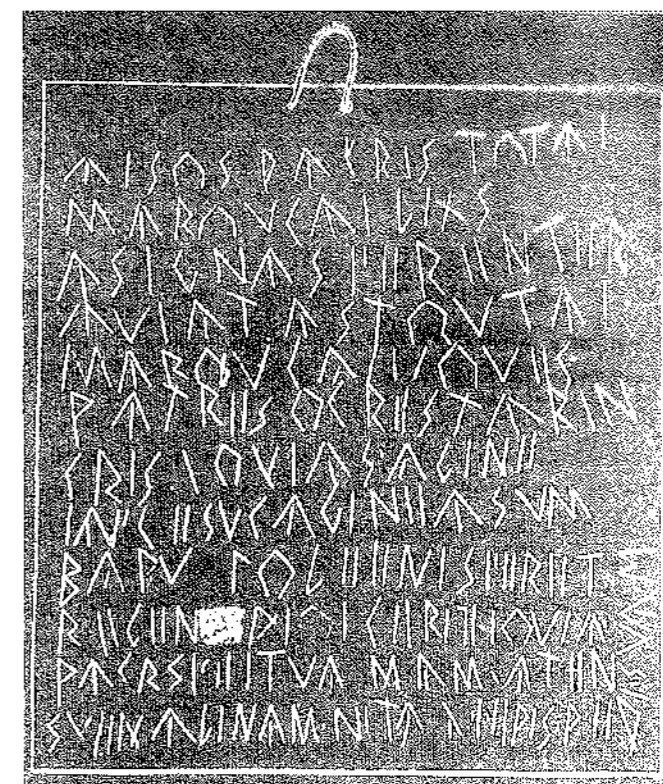 AISOS PACRIS TOTAI
MAROVCAI LIXS
ASIGNAS FERENTER
AVIATAS TOVTAI
MAROVCAI IOVES
PATRES OCRES TARIN
CRIS IOVIAS AGINE
IAFC ESVC AGINE ASVM
BABV POLEENIS FERET
REGEN PIOI CERIE IOVIA
PACRSI EITVAM AM ATEN
SVENALINAM NITA NIPIS PEDI SVAM